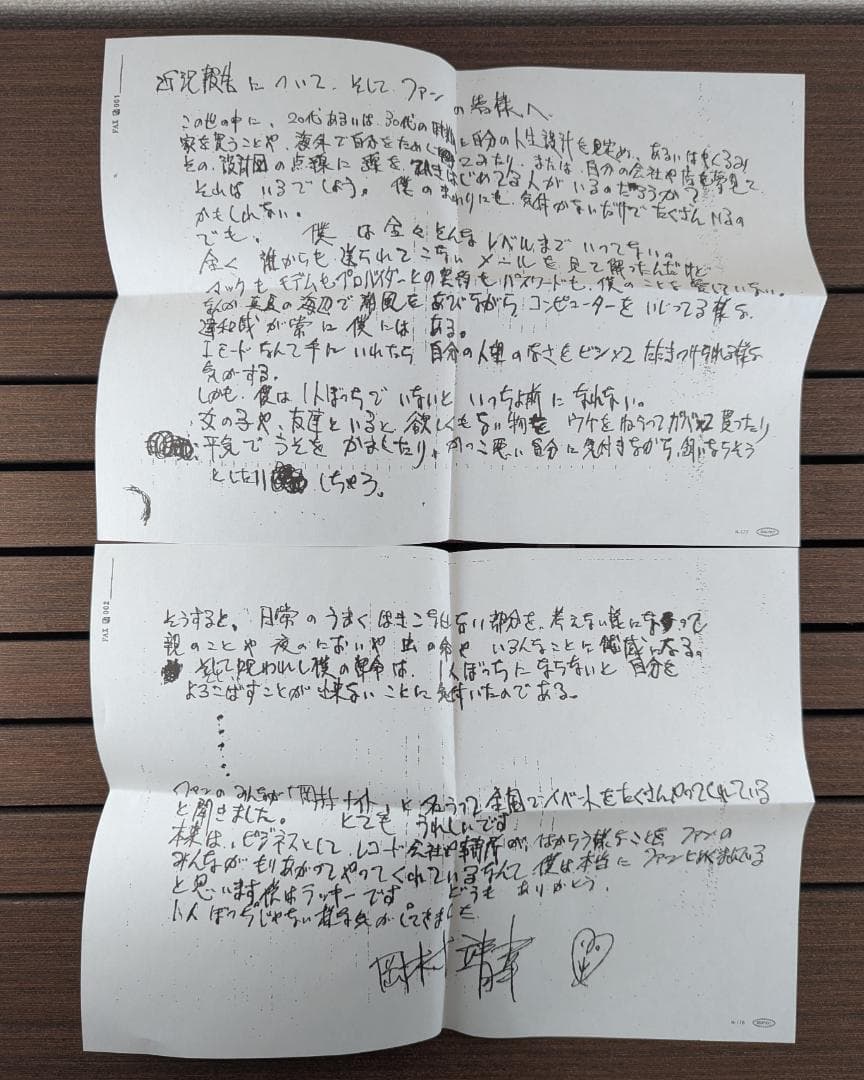 FAX 001
近況報告について、そして、ファンの皆様へ
この世の中に、20代あるいは、30代の時期に自分の人生設計を見定め、あるいはもくろみ
家を買うことや、海外で自分をためしてみたり、または、自分の会社や店を夢見て
その、設計図の点線に護を、ひきはじめてる人がいるのだろうか?
それは いるでしょう。僕のまわりにも、気付かないだけで たくさんいるの
かもしれない。
でも、僕は全々そんなレベルまで いってない。
全く 誰からも送られてこないメールを見て解ったんだけど
マックもモデムもプロバイダーとの実約も、パスワードも、僕のことを愛していない。
なんか 真夏の海辺で潮風をあびながらコンピューターをいじってる様な
違和感が常に僕にはある。
Iモードなんて手にいれたら 自分の人望のなさをビシバシたたきつけられる様な
気がする。
しかも、僕は1人ぼっちでいないと いっちょ前になれない。
女の子や、友達といると 欲しくもない物を ウケをねらってガバッと買ったり
平気でうそをかましたり、かっこ悪い自分に気付きながら、飼いならそう
としたり しちゃう。
FAX 002
そうすると、日常のうまくはきこなせない部分を、考えない様になって
親のことや 夜のにおいや 虫の命や いろんなことに鈍感になる。
そして呪われし僕の革命は、1人ぼっちにならないと 自分を
よろこばすことが出来ないことに気付いたのである。
ファンのみんなが「岡村ナイト」と名うって全国でイベントをたくさんやってくれている
と聞きました。とても うれしいです
本来は、ビジネスとして、レコード会社や事務所が、はからう様なことを ファンの
みんながもりあがってやってくれているなんて 僕は本当に ファンに恵まれている
と思います。僕はラッキーです。どうも ありがとう。
1人ぼっちじゃない様な気がしてきました
岡村靖幸